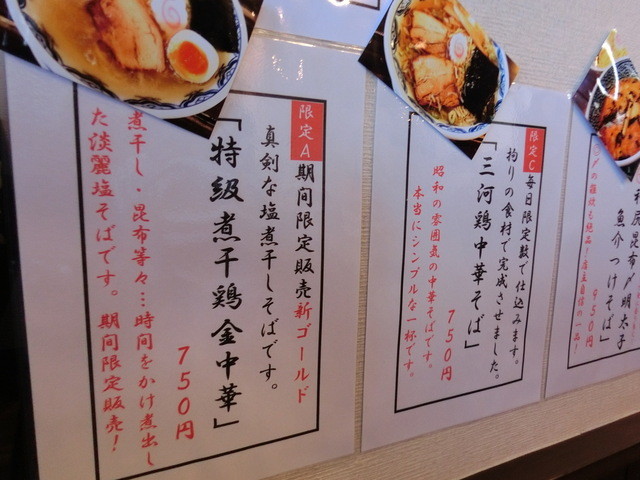 限定A 期間限定販売新ゴールド
真剣な塩煮干しそばです。
「特級煮干鶏金中華」
750円
煮干し・昆布等々…時間をかけ煮出し
た淡麗塩そばです。期間限定販売！
限定C 毎日限定数で仕込みます。
拘りの食材で完成させました。
「三河鶏中華そば」
750円
昭和の雰囲気の中華そばです。
本当にシンプルな一杯です。
昆布〆明太子
魚介つけそば」
950円
〆の雑炊も絶品！店主自信の一品！